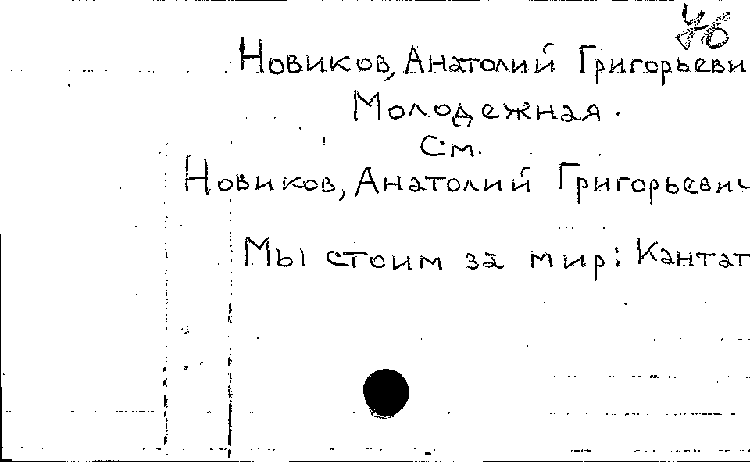 Уб
Новиков, Анатолий Григорьеви
Молодежная.
См.
Новиков, Анатолий Григорьевич
Мы стоим за мир: Кантат